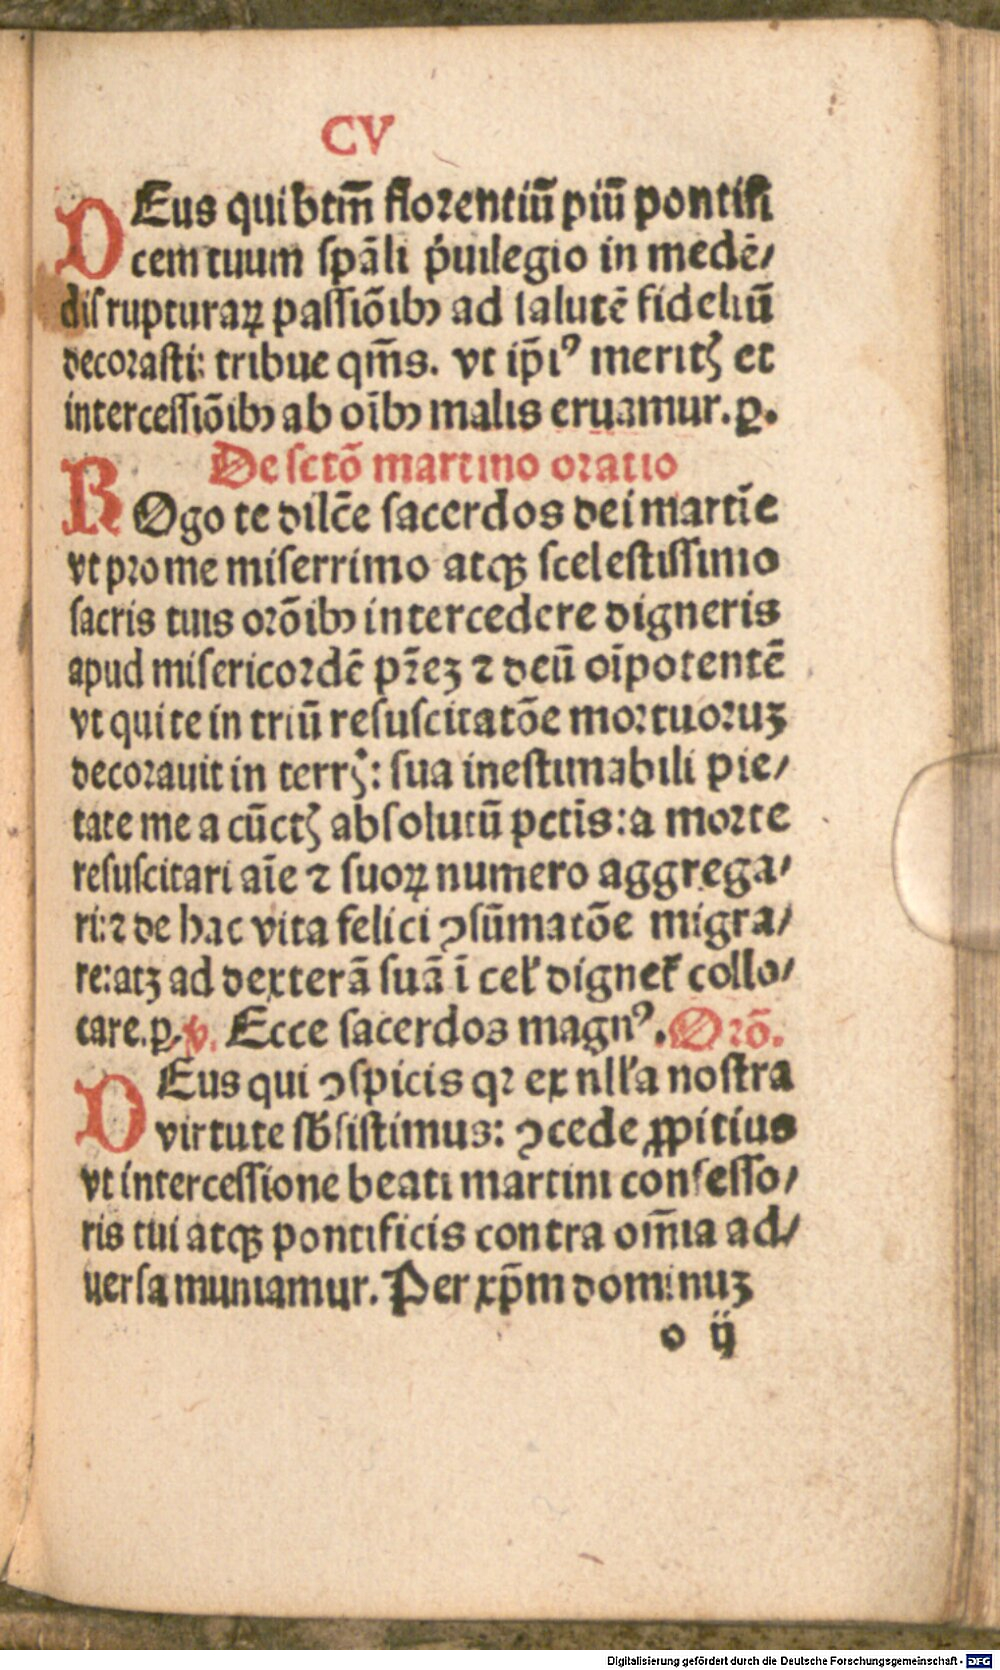 CV
DEus qui btm̄ florentiū piū pontifi
cem tuum sp̄ali p̄uilegio in medē/
dis rupturaꝝ passiōibꝫ ad salutē fideliū
decorasti: tribue qm̄s. vt ip̄iꝰ meritꝭ et
intercessiōibꝫ ab oībꝫ malis eruamur. ꝑ.
De sctō martino oratio
ROgo te dilc̄e sacerdos dei martīe
vt pro me miserrimo atqꝫ scelestissimo
sacris tuis orōibꝫ intercedere digneris
apud misericordē pr̄eꝫ ⁊ deū oīpotentē
vt qui te in triū resuscitatōe mortuoruꝫ
decorauit in terrꝭ: sua inestimabili pie/
tate me a cūctꝭ absolutū pctīs: a morte
resuscitari aīe ⁊ suoꝝ numero aggrega/
ri: ⁊ de hac vita felici ꝯsūmatōe migra/
re: atꝫ ad dexterā suā ī cel̛ dignet̛ collo/
care. ꝑ. ꝟ. Ecce sacerdos magnꝰ. Orō.
DEus qui ꝯspicis qꝛ ex nll̛a nostra
virtute sb̄sistimus: ꝯcede ꝓpitius
vt intercessione beati martini confesso/
ris tui atqꝫ pontificis contra om̄ia ad/
uersa muniamur. Per xp̄m dominuꝫ
o ij
Digitalisierung gefördert durch die Deutsche Forschungsgemeinschaft - DFG